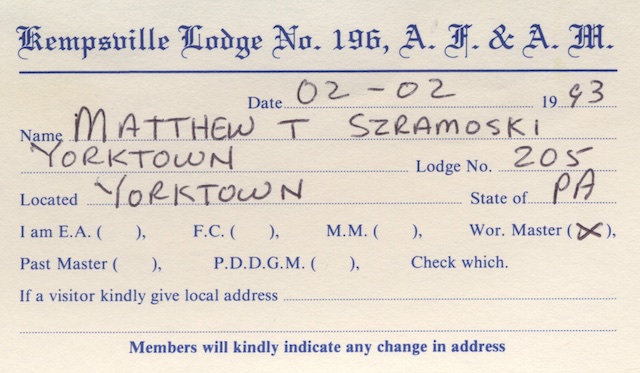 Kempsville Lodge No. 196, A. F. & A. M.
Date 02-02 1993
Name MATTHEW T SZRAMOSKI
YORKTOWN Lodge No. 205
Located YORKTOWN State of PA
I am E.A. ( ), F.C. ( ), M.M. ( ), Wor. Master (X),
Past Master ( ), P.D.D.G.M. ( ), Check which.
If a visitor kindly give local address
Members will kindly indicate any change in address